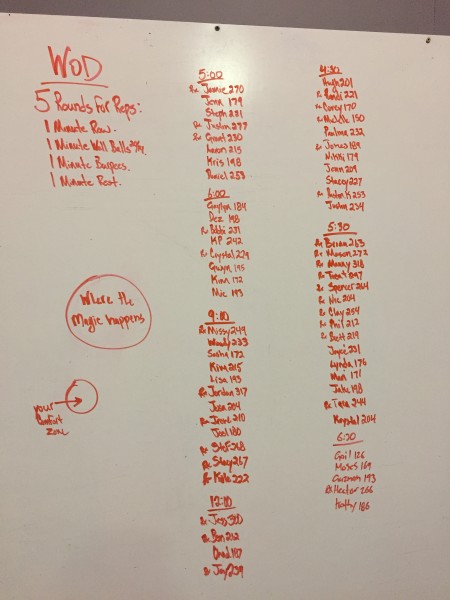 WOD
5 Rounds for Reps:
1 Minute Row.
1 Minute Wall Balls 20/14
1 Minute Burpees.
1 Minute Rest.
Where the
Magic happens
your
Comfort
Zone
5:00
Rx Jamie 270
Jenn 179
Steph 221
Rx Justin 277
Rx Grant 230
Aaron 215
Kris 198
Daniel 253
6:00
Gaylyn 184
Dez 198
Rx Bobbi 231
KP 242
Rx Crystal 229
Gwyn 195
Kim 172
Mic 193
9:00
Rx Missy 249
Woody 233
Sasha 172
Kina 215
Lisa 193
Rx Jordan 317
Jason 204
Rx 210
Joel 180
Rx Stef 268
Rx Stacy 267
Rx Kala 222
12:00
Rx Jess 300
Rx Ben 212
Chad 187
Rx Jay 239
4:30
Hugh 201
Rx Randi 221
Rx Corey 170
Rx Maddie 150
Paulina 232
Rx James 189
Nikki 179
Jenn 209
Stacey 227
Rx K 253
Justin 234
5:30
Rx Brian 263
Rx Mason 272
Rx Manny 318
Rx Trent
Rx Spencer 264
Rx Nic 204
Rx Clay 254
Rx Phil 212
Rx Brett 219
Joyce 231
Lynda 176
Mari 171
Jake 198
Rx Tara 244
Krystal 204
6:30
Gail 126
Moses 169
Guzman 193
Rx Hector 266
Kathy 186